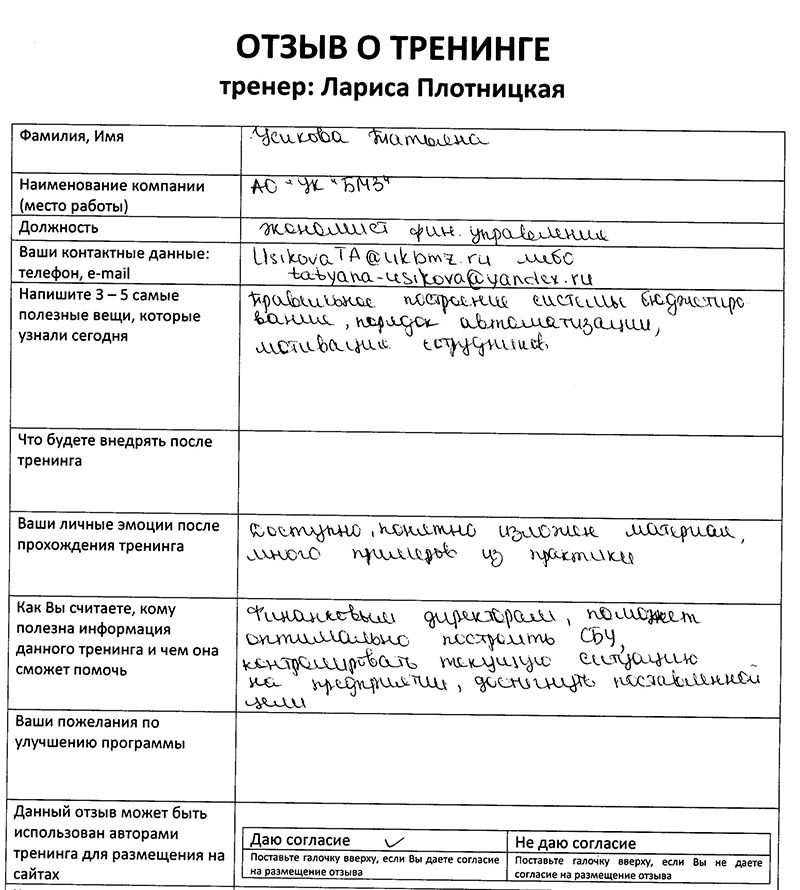 ОТЗЫВ О ТРЕНИНГЕ
тренер: Лариса Плотницкая
Фамилия, Имя
Усикова Татьяна
Наименование компании
(место работы)
АО "УК "БМЗ"
Должность
экономист фин. управления
Ваши контактные данные:
телефон, e-mail
UsikovaTA@ukbmz.ru либо
tatyana-usikova@yandex.ru
Напишите 3 – 5 самые
полезные вещи, которые
узнали сегодня
Правильное построение системы бюджетиро
вания, порядок автоматизации,
мотивация сотрудников
Что будете внедрять после
тренинга
Ваши личные эмоции после
прохождения тренинга
Доступно, понятно изложен материал,
много примеров из практики
Как Вы считаете, кому
полезна информация
данного тренинга и чем она
сможет помочь
Финансовым директорам, поможет
оптимально построить СБУ,
контролировать текущую ситуацию
на предприятии, достигнуть поставленной
цели
Ваши пожелания по
улучшению программы
Данный отзыв может быть
использован авторами
тренинга для размещения на
сайтах
Даю согласие ✓
Поставьте галочку вверху, если Вы даете согласие
на размещение отзыва
Не даю согласие
Поставьте галочку вверху, если Вы не даете
согласие на размещение отзыва